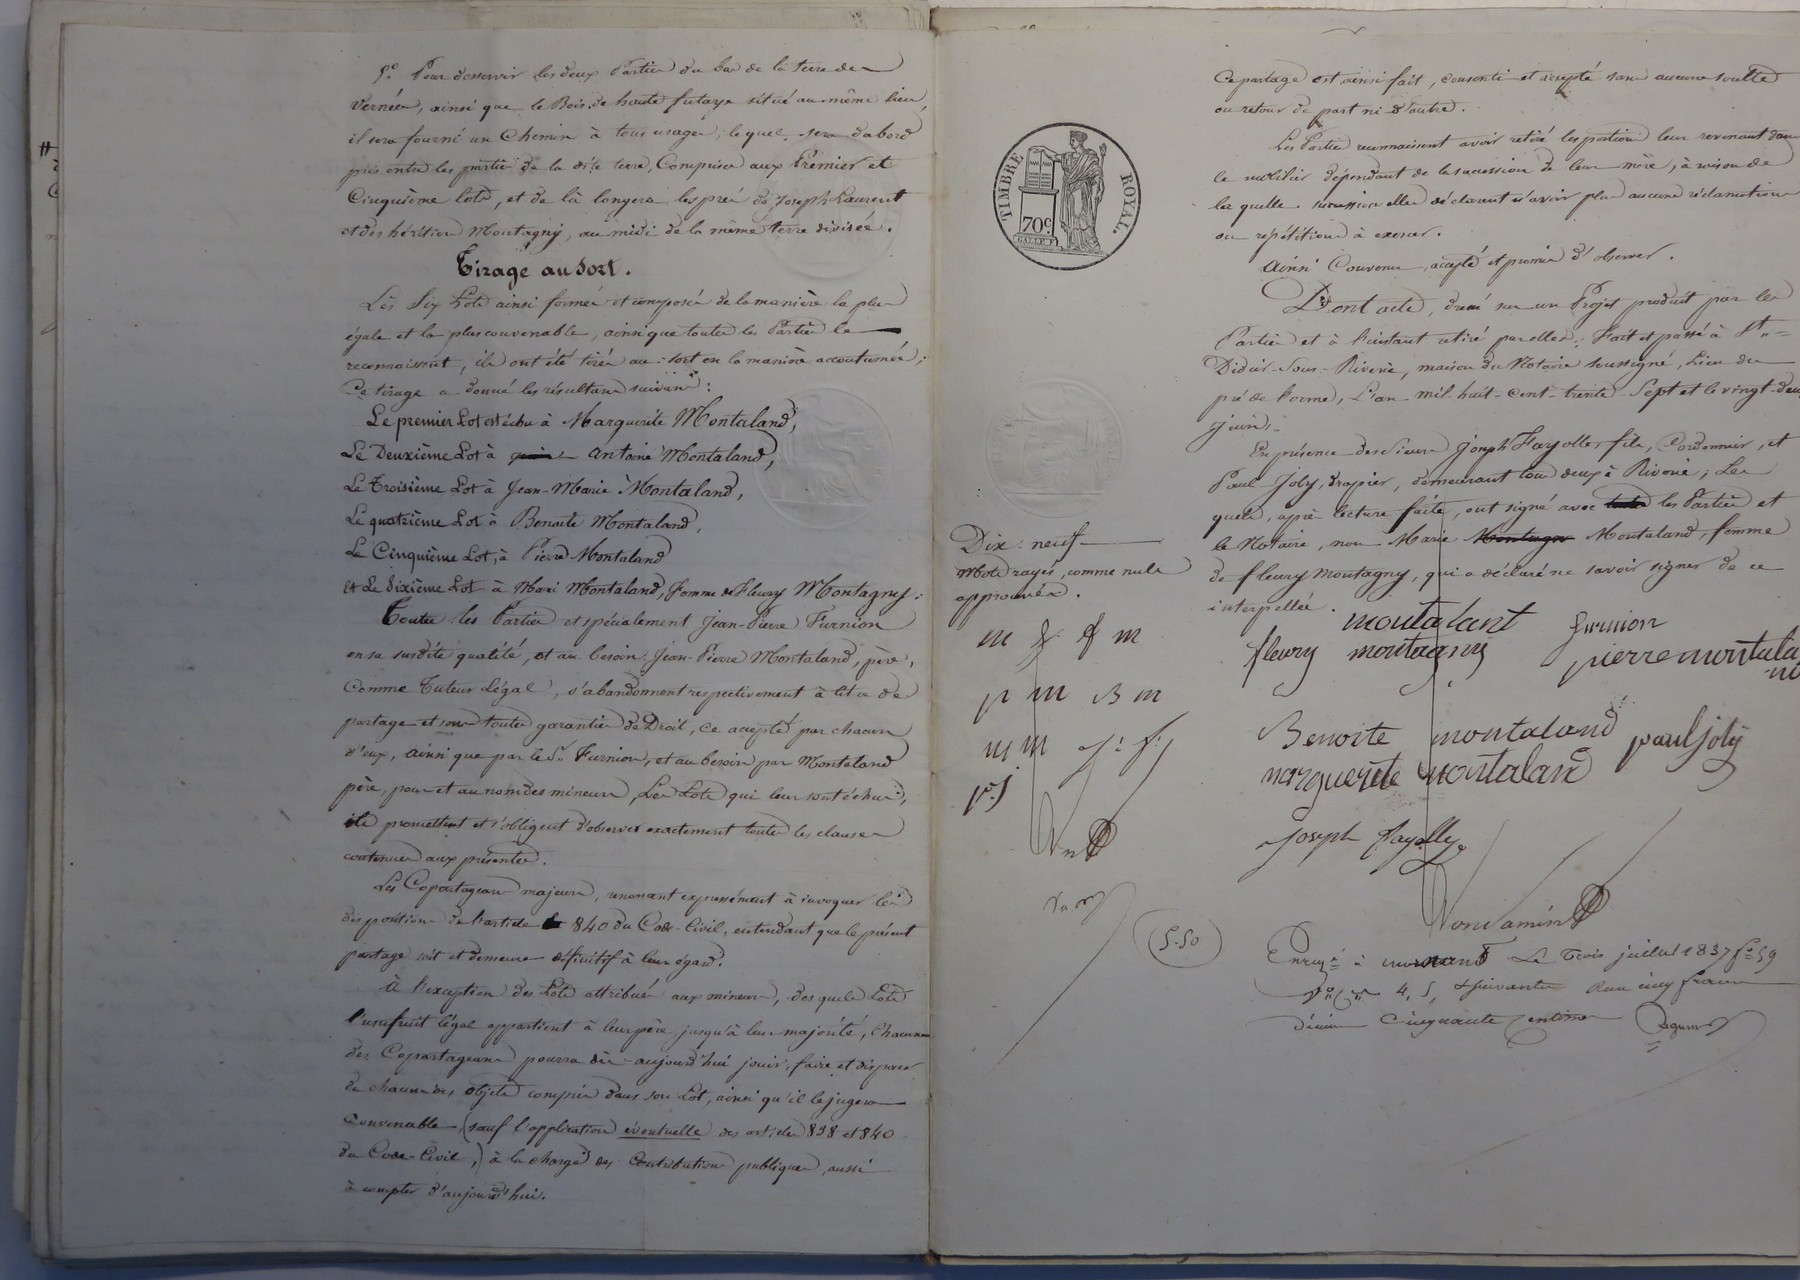 5.° Pour desservir les deux Parties du bas de la terre de
Vernée, ainsi que le Bois de haute futaye situé au même lieu,
il sera fourni un Chemin à tous usages, lequel sera d'abord
pris entre les parties de la dite terre, Comprises aux Premier et
Cinquième lots, et de là longera les prés de Joseph Laurent
et des héritiers Montagny, au midi de la même terre divisée.
Tirage au Sort.
Les Six Lots ainsi formés et composés de la manière la plus
égale et la plus convenable, ainsi que toutes les Parties le
reconnaissent, ils ont été tirés au sort en la manière accoutumée;
Ce tirage a donné les résultans suivans:
Le premier Lot est échu à Marguerite Montaland,
Le Deuxième Lot à Antoine Montaland,
Le Troisième Lot à Jean-Marie Montaland,
Le quatrième Lot à Benoite Montaland,
Le Cinquième Lot, à Pierre Montaland
Et Le Sixième Lot à Marie Montaland, femme de Fleury Montagny;
Toutes les Parties et spécialement Jean-Pierre Furnion
en sa susdite qualité, et au besoin Jean-Pierre Montaland, père,
Comme Tuteur Légal, s'abandonnent respectivement à titre de
partage et sous toutes garanties de Droit, ce accepté par chacun
d'eux, ainsi que par le S.r Furnion, et au besoin par Montaland
père, pour et au nom des mineurs, Les Lots qui leur sont échus,
ils promettent et s'obligent d'observer exactement toutes les clauses
contenues aux présentes.
Les Copartageans majeurs, renonçant expressément à invoquer les
dispositions de l'article 840 du Code-Civil, entendant que le présent
partage soit et demeure définitif à leur égard.
À l'exception des Lots attribués aux mineurs, desquels Lots
l'usufruit légal appartient à leur père, jusqu'à leur majorité, Chacun
des Copartageans pourra dès-aujourd'hui jouir, faire et disposer
de chacun des objets compris dans son Lot, ainsi qu'il le jugera
Convenable, (sauf l'application éventuelle des articles 838 et 840
du Code-Civil,) à la charge des Contributions publiques, aussi
à compter d'aujourd'hui.
TIMBRE ROYAL.
70c
Ce partage est ainsi fait, consenti et accepté sans aucune soulte
ou retour de part ni d'autre.
Les Parties reconnaissent avoir retiré les portions leur revenant dans
le mobilier dépendant de la succession de leur mère, à raison de
laquelle succession elles déclarent n'avoir plus aucune réclamation
ou répétition à exercer.
Ainsi Convenu, accepté et promis d'observer.
Dont acte, dressé sur un Projet produit par les
Parties et à l'instant retiré par elles; Fait et passé à S.t-
Didier-Sous-Riverie, maison du Notaire soussigné, Lieu du
pré de l'orme, L'an mil-huit-cent-trente-Sept et le vingt-deux
juin.
En présence des Sieurs Joseph Fayolle, fils, Cordonnier, et
Paul Joly, drapier, demeurant tous deux à Riverie; Les
quels, après lecture faite, ont signé avec les Parties et
le Notaire, non Marie Montagny Montaland, femme
de fleury Montagny, qui a déclaré ne savoir signer de ce
interpellée.
Dix-neuf
Mots rayés, comme nuls
approuvés.
m f f m
p m B m
m m J. f.
p. J
montalant furnion
fleury montagny pierre montala
nd
Benoite montaland paul joly
marguerite montaland
Joseph fayolle
5-50
Enreg.é à mornant Le Trois juillet 1837 f.o 59
v.o c.es 4, 5, & suivantes Reçu cinq francs
décime Cinquante Centimes